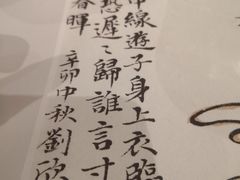 中線遊子身上衣臨
恐遲〻歸誰言寸
春暉
辛卯中秋劉欣